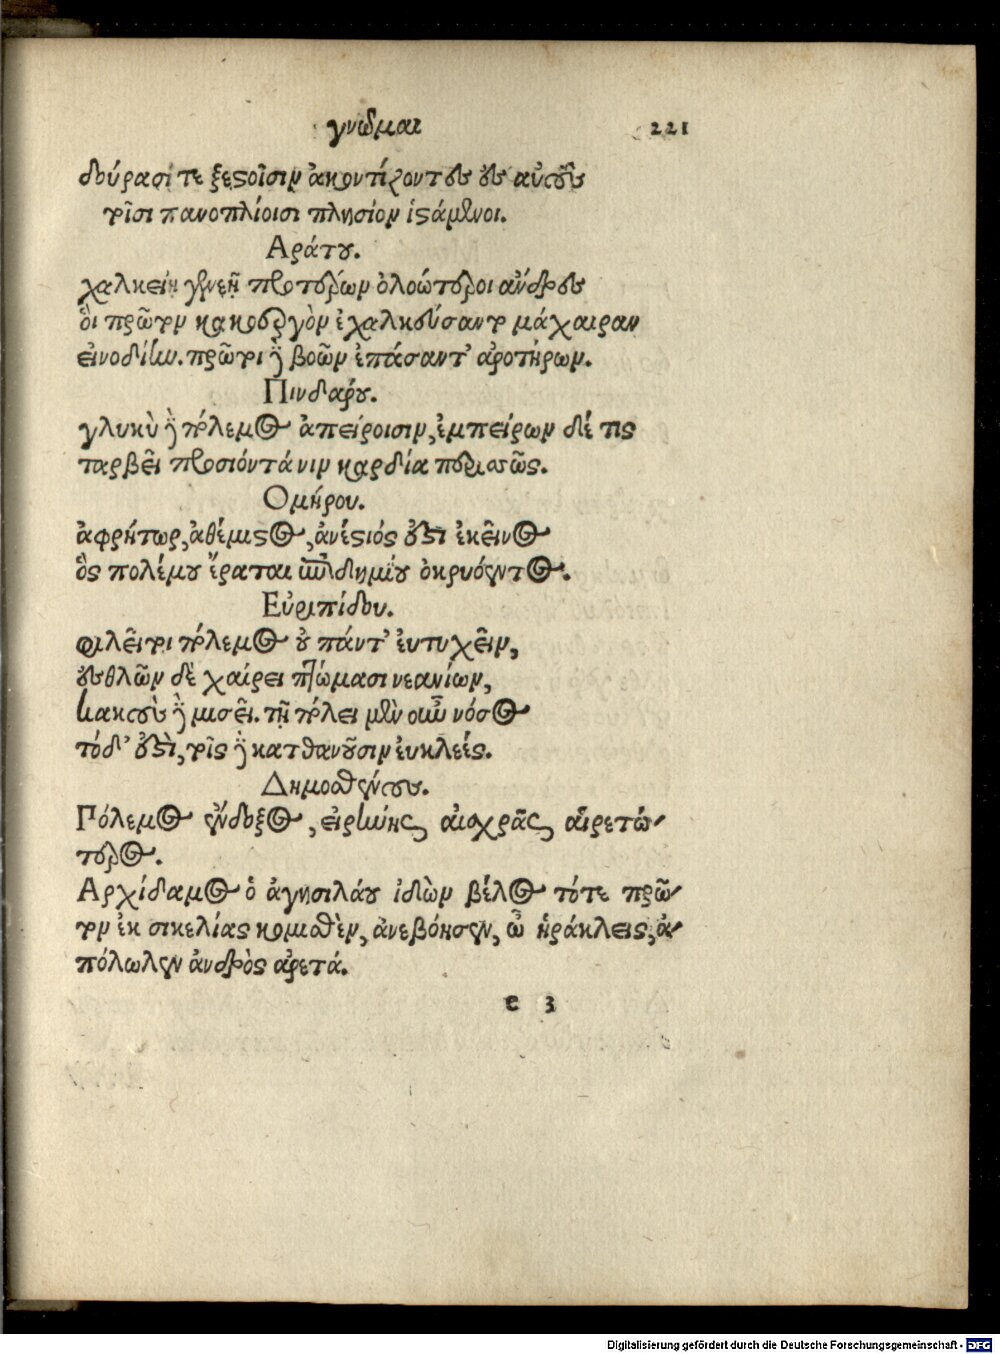 γνῶμαι 221
δούρασί τε ξεστοῖσιν ἀκοντίζοντες ἐς αὐτοὺς
τοῖσι πανοπλίοισι πλησίον ἱστάμενοι.
Αράτου.
χαλκείη γενεὴ προτέρων ὀλοώτεροι ἄνδρες
οἳ πρῶτοι κακοεργὸν ἐχαλκεύσαντο μάχαιραν
εἰνοδίην. πρῶτοι δὲ βοῶν ἐπάσαντ' ἀροτήρων.
Πινδάρου.
γλυκὺ δὲ πόλεμος ἀπείροισιν, ἐμπείρων δέ τις
ταρβεῖ προσιόντά νιν καρδία περισσῶς.
Ομήρου.
ἀφρήτωρ, ἀθέμιστος, ἀνέστιός ἐστι ἐκεῖνος
ὃς πολέμου ἔραται ἐπιδημίου ὀκρυόεντος.
Εὐριπίδου.
φιλεῖ τοι πόλεμος οὐ πάντ' ἐυτυχεῖν,
ἐσθλῶν δὲ χαίρει πτώμασι νεανίων,
κακοὺς δὲ μισεῖ. τῇ πόλει μὲν οὖν νόσος
τόδ' ἐστὶ, τοῖς δὲ κατθανοῦσιν ἐυκλεές.
Δημοσθένους.
Πόλεμος ἔνδοξος, εἰρήνης αἰσχρᾶς αἱρετώ-
τερος.
Αρχίδαμος ὁ ἀγησιλάου ἰδὼν βέλος τότε πρῶ-
τον ἐκ σικελίας κομισθὲν, ἀνεβόησεν, ὦ ἡράκλεις, ἀ-
πόλωλεν ἀνδρὸς ἀρετά.
e 3
Digitalisierung gefördert durch die Deutsche Forschungsgemeinschaft - DFG